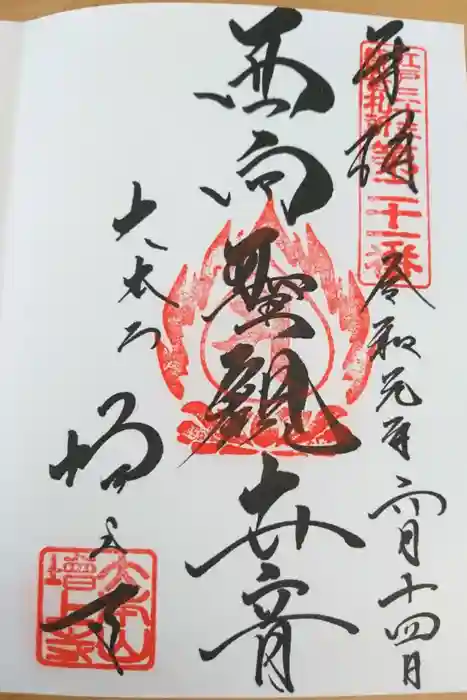 江戸三十三
観音札所
第二十一番
奉拝
令和元年六月十四日
西向聖観世音
大本山
増上寺
大本山
増上寺